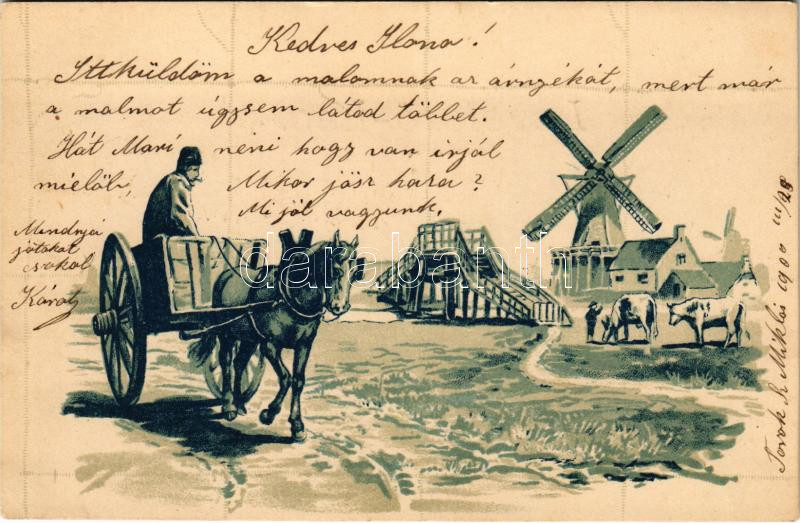 Kedves Ilona!
Ittküldöm a malomnak az árnyékát, mert már
a malmot úgysem látod többet.
Hát Mari néni hogy van irjál
mielöb, Mikor jösz haza?
Mi jól vagyunk.
Mindnyájótokat
csokol
Károly
Török Sz Miklós 1900 III/28
darabanth.com